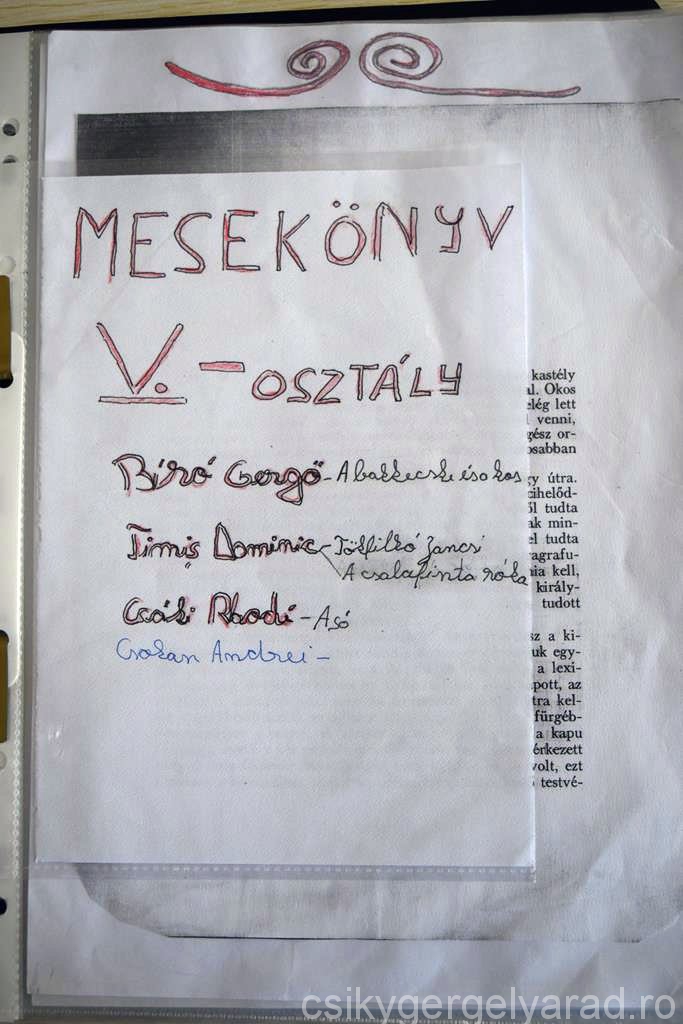 MESEKÖNYV
V. - OSZTÁLY
Bíró Gergő - A bakkecske és a kos
Timiș Dominic - Tökfilkó Jancsi
A csalafinta róka
Csáki Rhodi - A só
Csokan Andrei -
kastély
al. Okos
elég lett
venni,
gész or-
osabban
gy útra.
cihelőd-
ől tudta
ak min-
el tudta
agrafu-
nia kell,
király-
tudott
sz a ki-
uk egy-
a lexi-
pott, az
tra kel-
fürgéb-
a kapu
érkezett
volt, ezt
testvé-
csikygergelyarad.ro